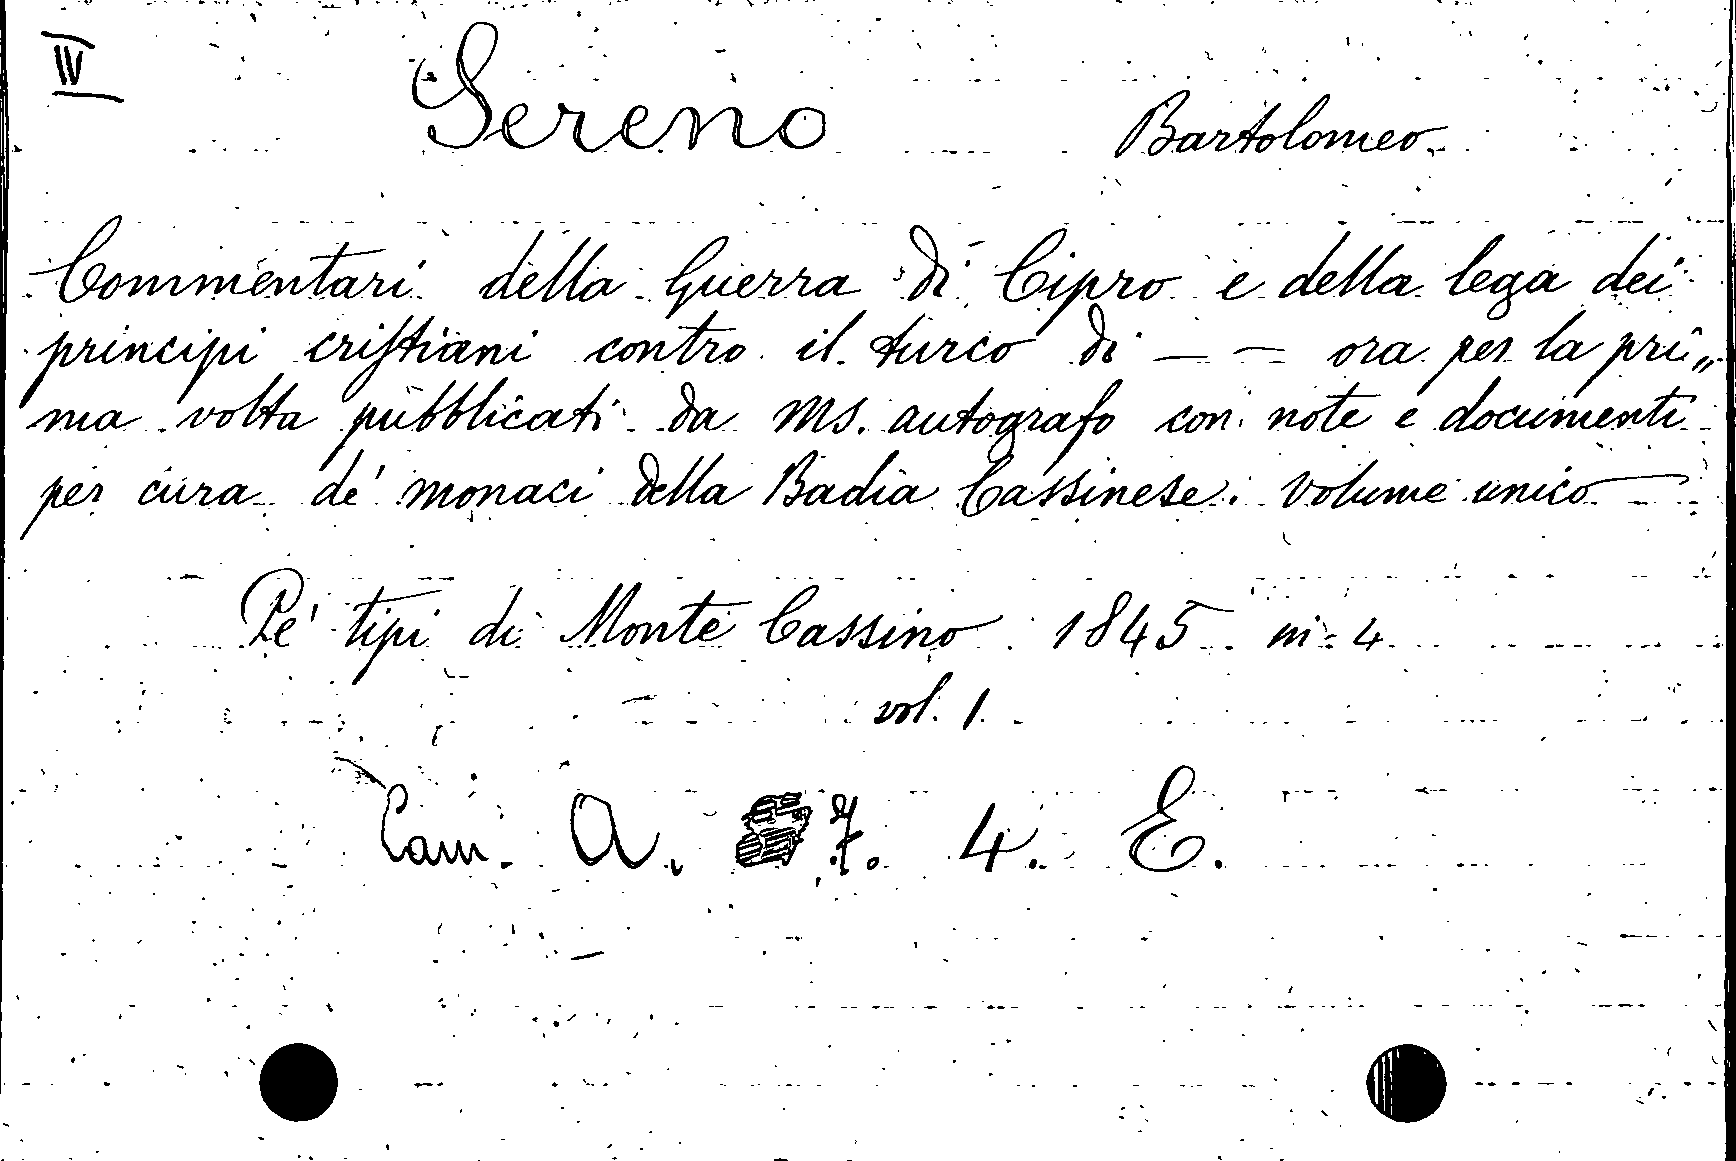 IV
Sereno Bartolomeo.
Commentari della Guerra di Cipro e della lega dei
principi cristiani contro il turco di — — ora per la pri„
ma volta pubblicati da Ms. autografo con note e documenti
per cura de' monaci della Badia Cassinese. Volume unico —
Pe' tipi di Monte Cassino 1845 in-4
vol. 1.
Cam. A. 7. 4. E.